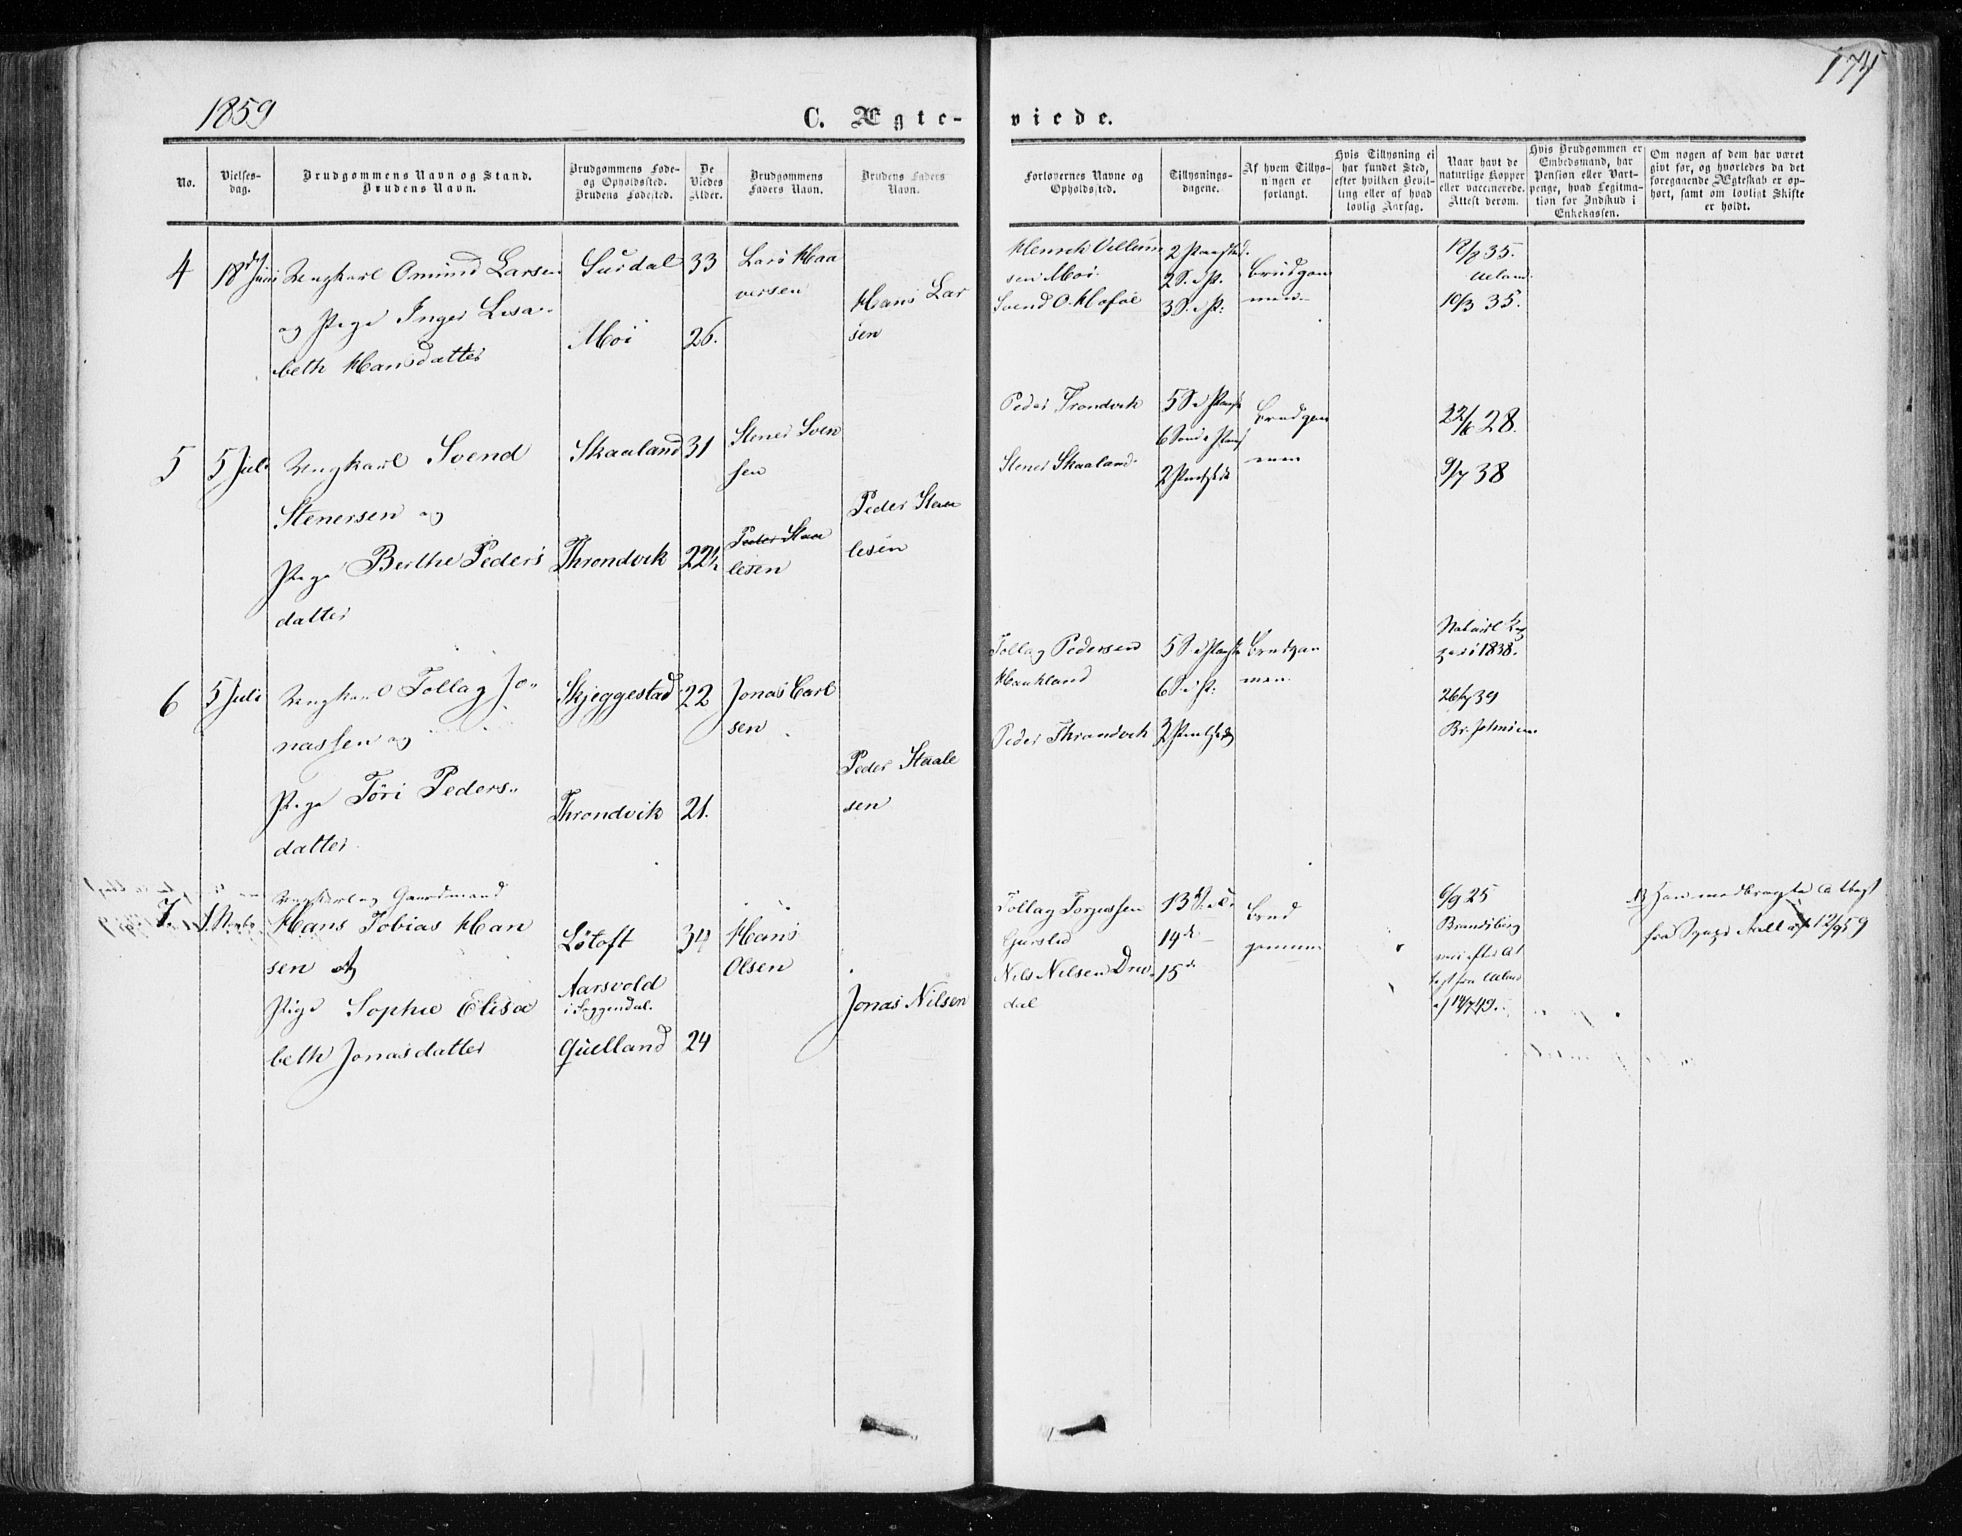 1859
174
C. Ægte-
viede.
No.
Vielses-
dag.
Brudgommens Navn og Stand.
Brudens Navn.
Brudgommens Føde-
og Opholdssted.
Brudens Fødested.
De
Viedes
Alder.
Brudgommens
Faders Navn.
Brudens Faders
Navn.
Forlovernes Navne og
Opholdssted.
Tillysnings-
dagene.
Af hvem Tillys-
ningen er
forlangt.
Hvis Tillysning ei
har fundet Sted,
efter hvilken Bevil-
ling eller af hvad
lovlig Aarsag.
Naar havt de
naturlige Kopper
eller vaccinerede.
Attest derom.
Hvis Brudgommen er
Embedsmand, har
Pension eller Vart-
penge, hvad Legitima-
tion for Indskud i
Enkekassen.
Om nogen af dem har været
givt før, og hvorledes da det
foregaaende Ægteskab er op-
hørt, samt om lovligt Skifte
er holdt.
4
18de Juni
Ungkarl Omund Larsen
og Pige Inger Lisa-
beth Hansdatter
Surdal
Moi
33
26.
Lars Haa
versen
Hans Lar
sen
Henrik Villum
sen Moi.
Svend O. Mofoie
2 S. i P.
3 S. i P.
Brudgom
men
18/8 35.
Ueland
10/3 35.
5
5 Juli
Ungkarl Svend
Stenersen og
Pige Berthe Peders
datter
Skaaland
Throndvik
31
22½
Stener Sven
sen
Peder Staa
lesen
Peder Staa
lesen
Peder Trondvik
Stener Skaaland
Brudgom
men
22/6 28.
9/7 38
6
5 Juli
Ungkarl Tollag Jo-
nassen og
Pige Töri Peders-
datter
Skjeggestad
Throndvik
22
21.
Jonas Carl
sen
Peder Staale
sen
Tollag Pedersen
Haukland
Peder Throndvik
6 S. i P.
Brudgom
men
Naturl. Kop
per i 1838.
26/7 39
7.
Ungkarl og Gaardmand
Hans Tobias Han
sen og
Pige Sophie Elisa
beth Jonasdatter
Løtoft
Aarsvold
i Soggendal.
Qvelland
34
24
Hans
Olsen
Jonas Nilsen
Tollag Torjussen
Nils Nilsen Dro-
dal
14de
15de
Brud
gommen
6/9 25
efter At
test fra
af 14/7 49.
NB Han medbragte Attest
fra 12/9 59